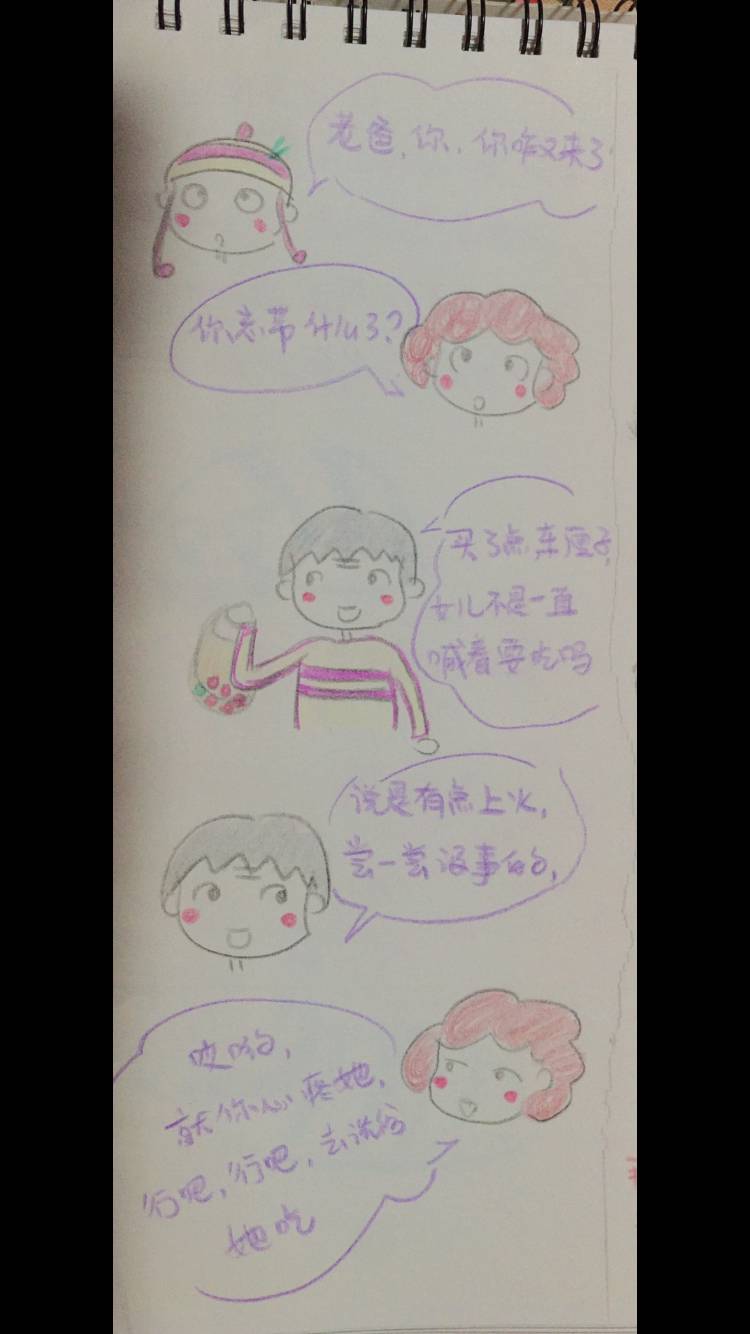 老爸,你,你咋又来了
你忘带什么了?
买了点车厘子,
女儿不是一直
喊着要吃吗
说是有点上火,
尝一尝没事的,
哎哟,
就你心疼她,
行吧,行吧,去洗给
她吃